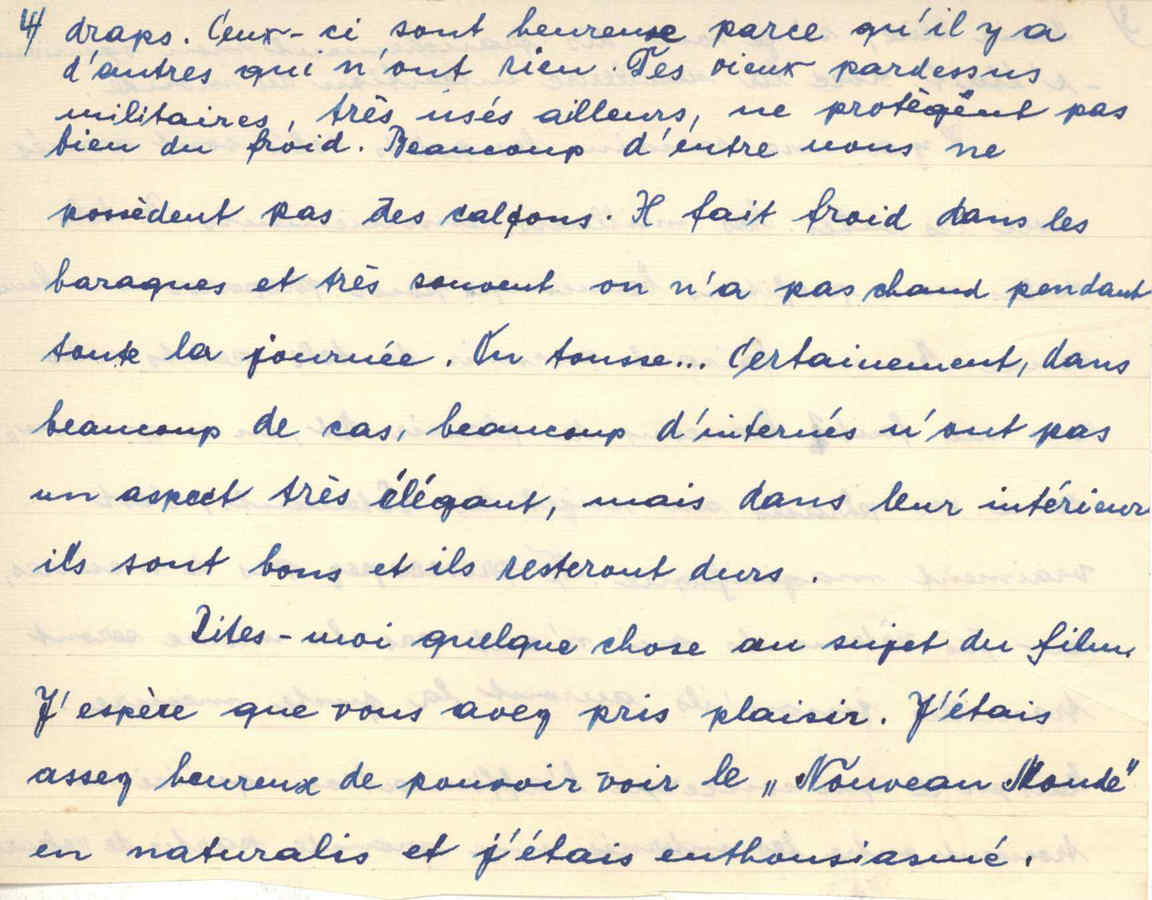 4/ draps. Ceux-ci sont heureuse parce qu'il y a
d'autres qui n'ont rien. Tes vieux pardessus
militaires, très usés ailleurs, ne protègent pas
bien du froid. Beaucoup d'entre nous ne
possèdent pas des calçons. Il fait froid dans les
baraques et très souvent on n'a pas chaud pendant
toute la journée. On tousse... Certainement, dans
beaucoup de cas, beaucoup d'internés n'ont pas
un aspect très élégant, mais dans leur intérieur
ils sont bons et ils resteront durs.
Dites-moi quelque chose au sujet du film.
J'espère que vous avez pris plaisir. J'étais
assez heureux de pouvoir voir le „Nouveau Monde"
en naturalis et j'étais enthousiasmé.